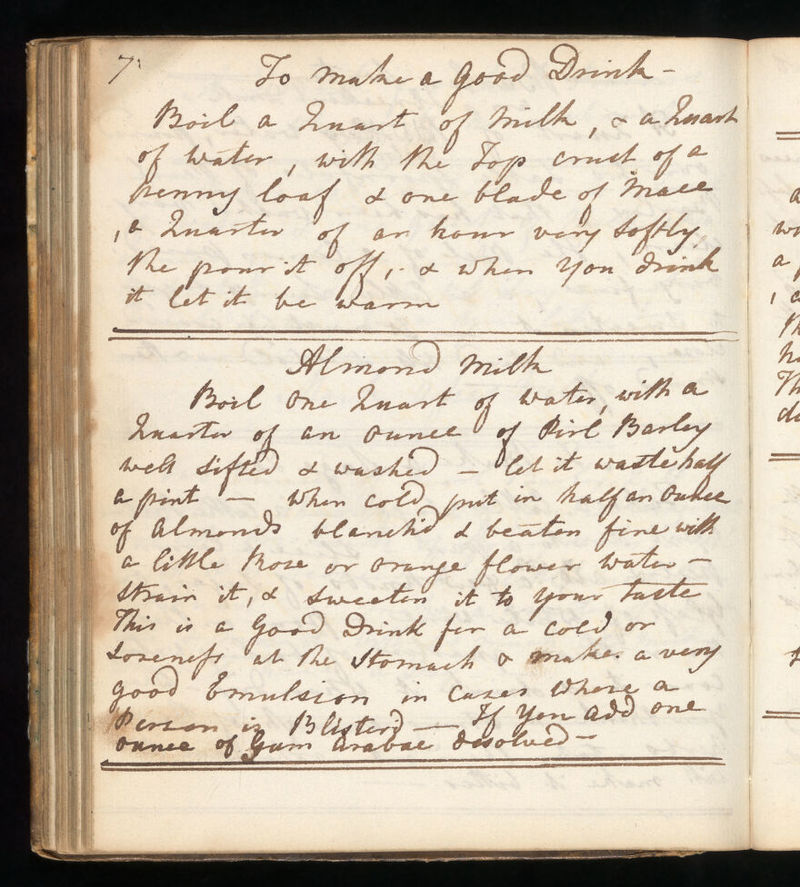 7
To make a Good Drink -
Boil a Quart of Milk, & a Quart
of Water, with the Top crust of a
penny loaf & one blade of Mace
, a Quarter of an hour very Softly
the pour it off, & when you drink
it let it be warm
Almond Milk
Boil One Quart of Water, with a
Quarter of an Ounce of Pirl Barley
well Sifted & washed - let it waste half
a pint - when cold put in half an Ounce
of Almonds blanch'd & beaten fine with
a little Rose or Orange flower Water -
Strain it, & Sweeten it to your taste
This is a Good Drink for a Cold or
Soreness at the Stomach & makes a very
good Emulsion in Cases Where a
Person is Blister'd - If You add one
Ounce of Gum Arabac desolved -